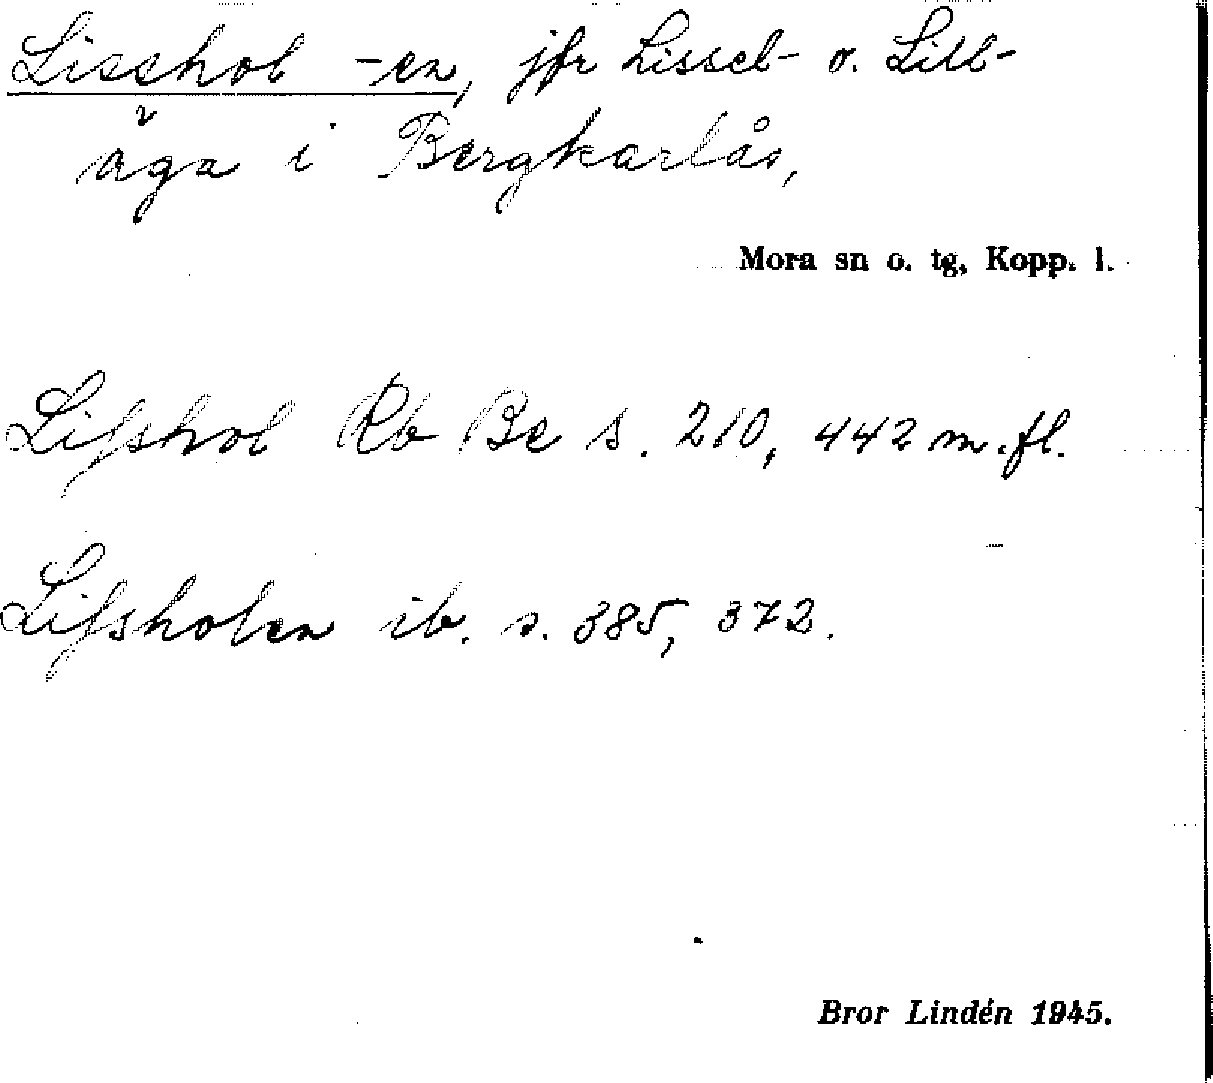 Lisshol -en, jfr Lissel- o. Lill-
äga i Bergkarlås,
Mora sn o. tg, Kopp. l.
Lisshol Rb Be s. 210, 442 m. fl.
Lissholen ib. s. 385, 372.
Bror Lindén 1945.